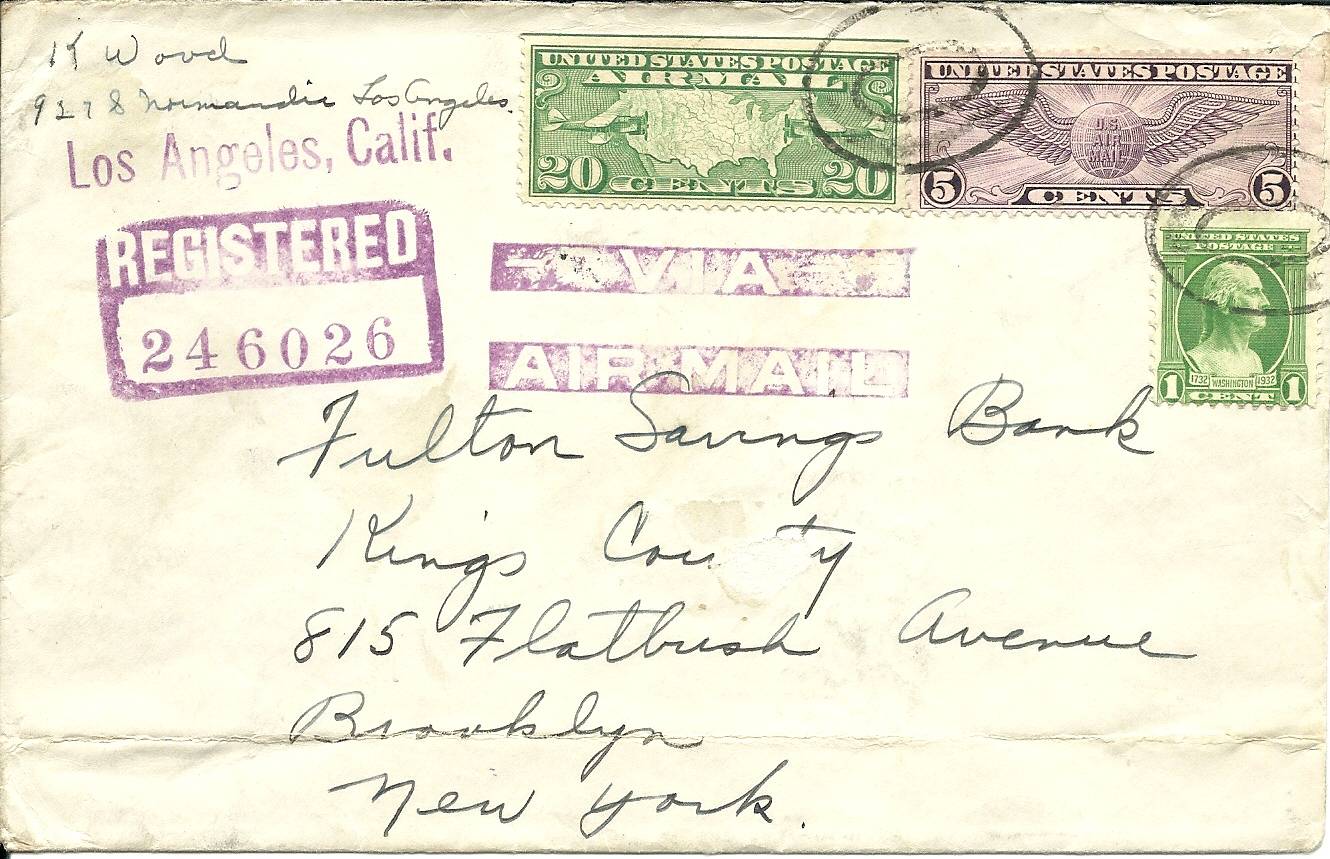 K Wood
927 S Normandie Los Angeles.
Los Angeles, Calif.
REGISTERED
246026
UNITED STATES POSTAGE
AIR MAIL
20 CENTS 20
UNITED STATES POSTAGE
U.S.
AIR
MAIL
5 CENTS 5
UNITED STATES
POSTAGE
1732 WASHINGTON 1932
1 CENT 1
VIA
AIR MAIL
Fulton Savings Bank
Kings Cou ty
815 Flatbush Avenue
Brooklyn
New York.